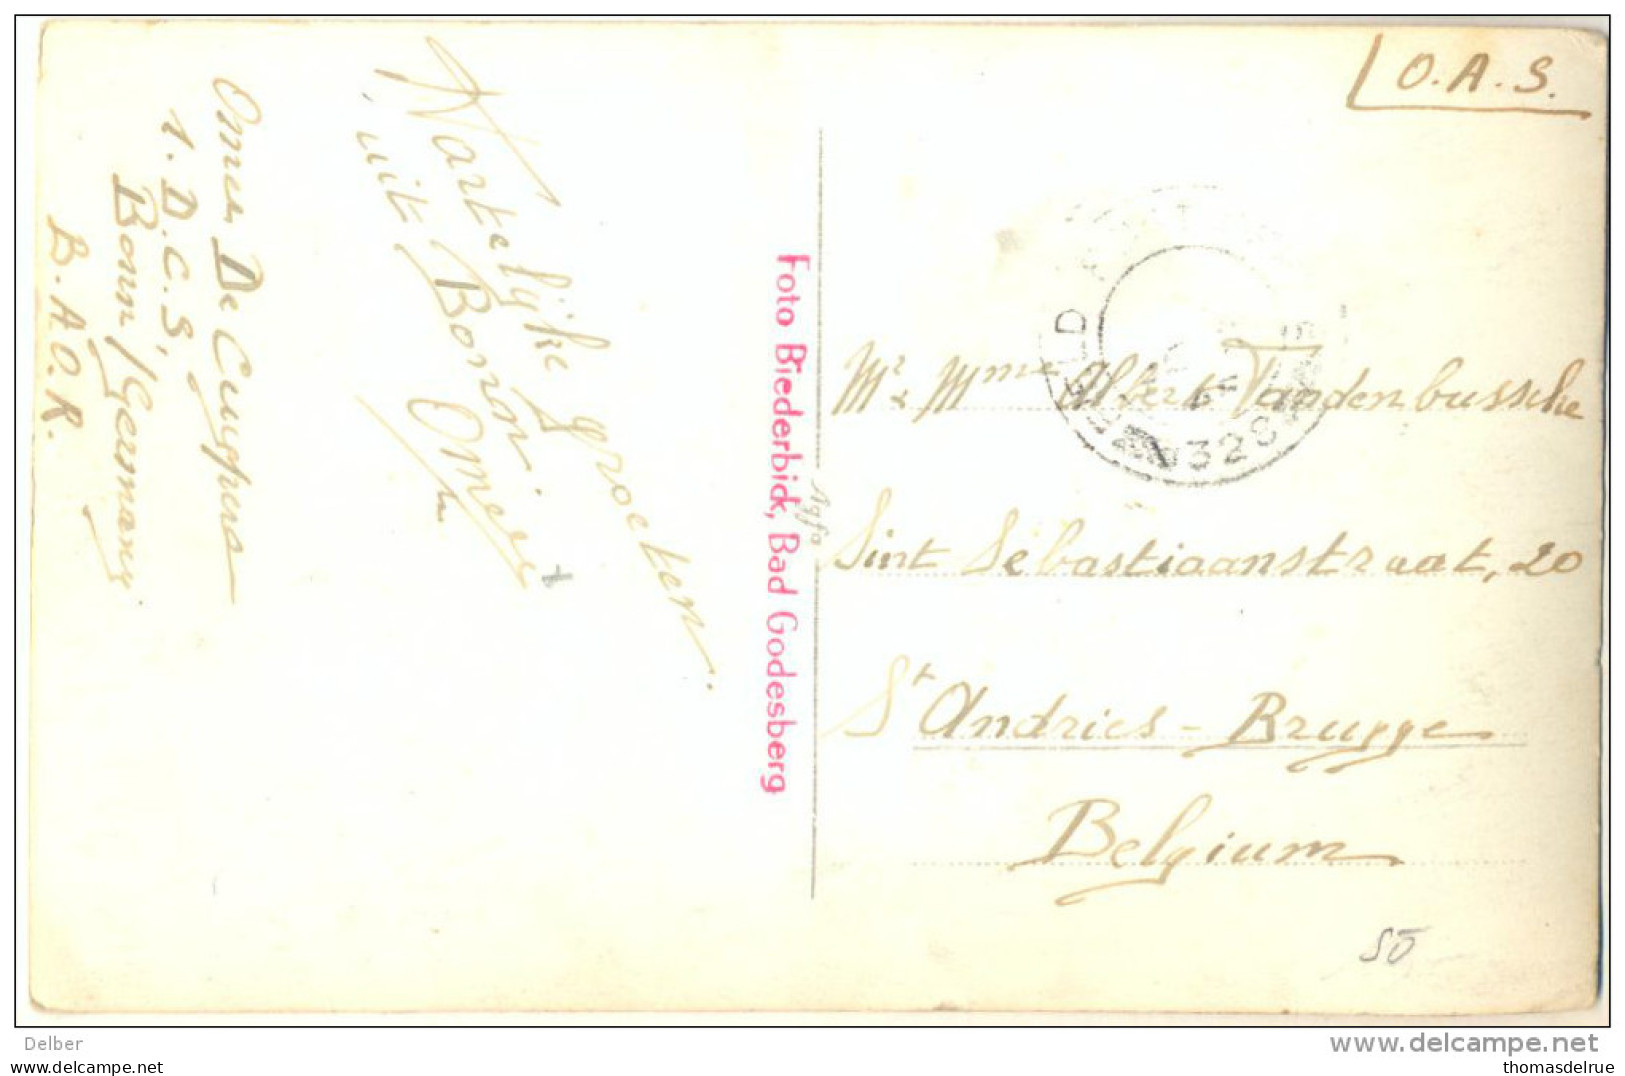 O.A.S.
Omer De Cuypers
1. D.C.S,
Bonn/Germany
B.A.O.R.
Hartelijke groeten
uit Bonn.
Omer
Foto Biederbick, Bad Godesberg
Agfa
Mr & Mme Albert Vandenbussche
Sint Sebastiaanstraat, 20
St Andries - Brugge
Belgium
328
50
Delber
www.delcampe.net
www.delcampe.net
thomasdelrue